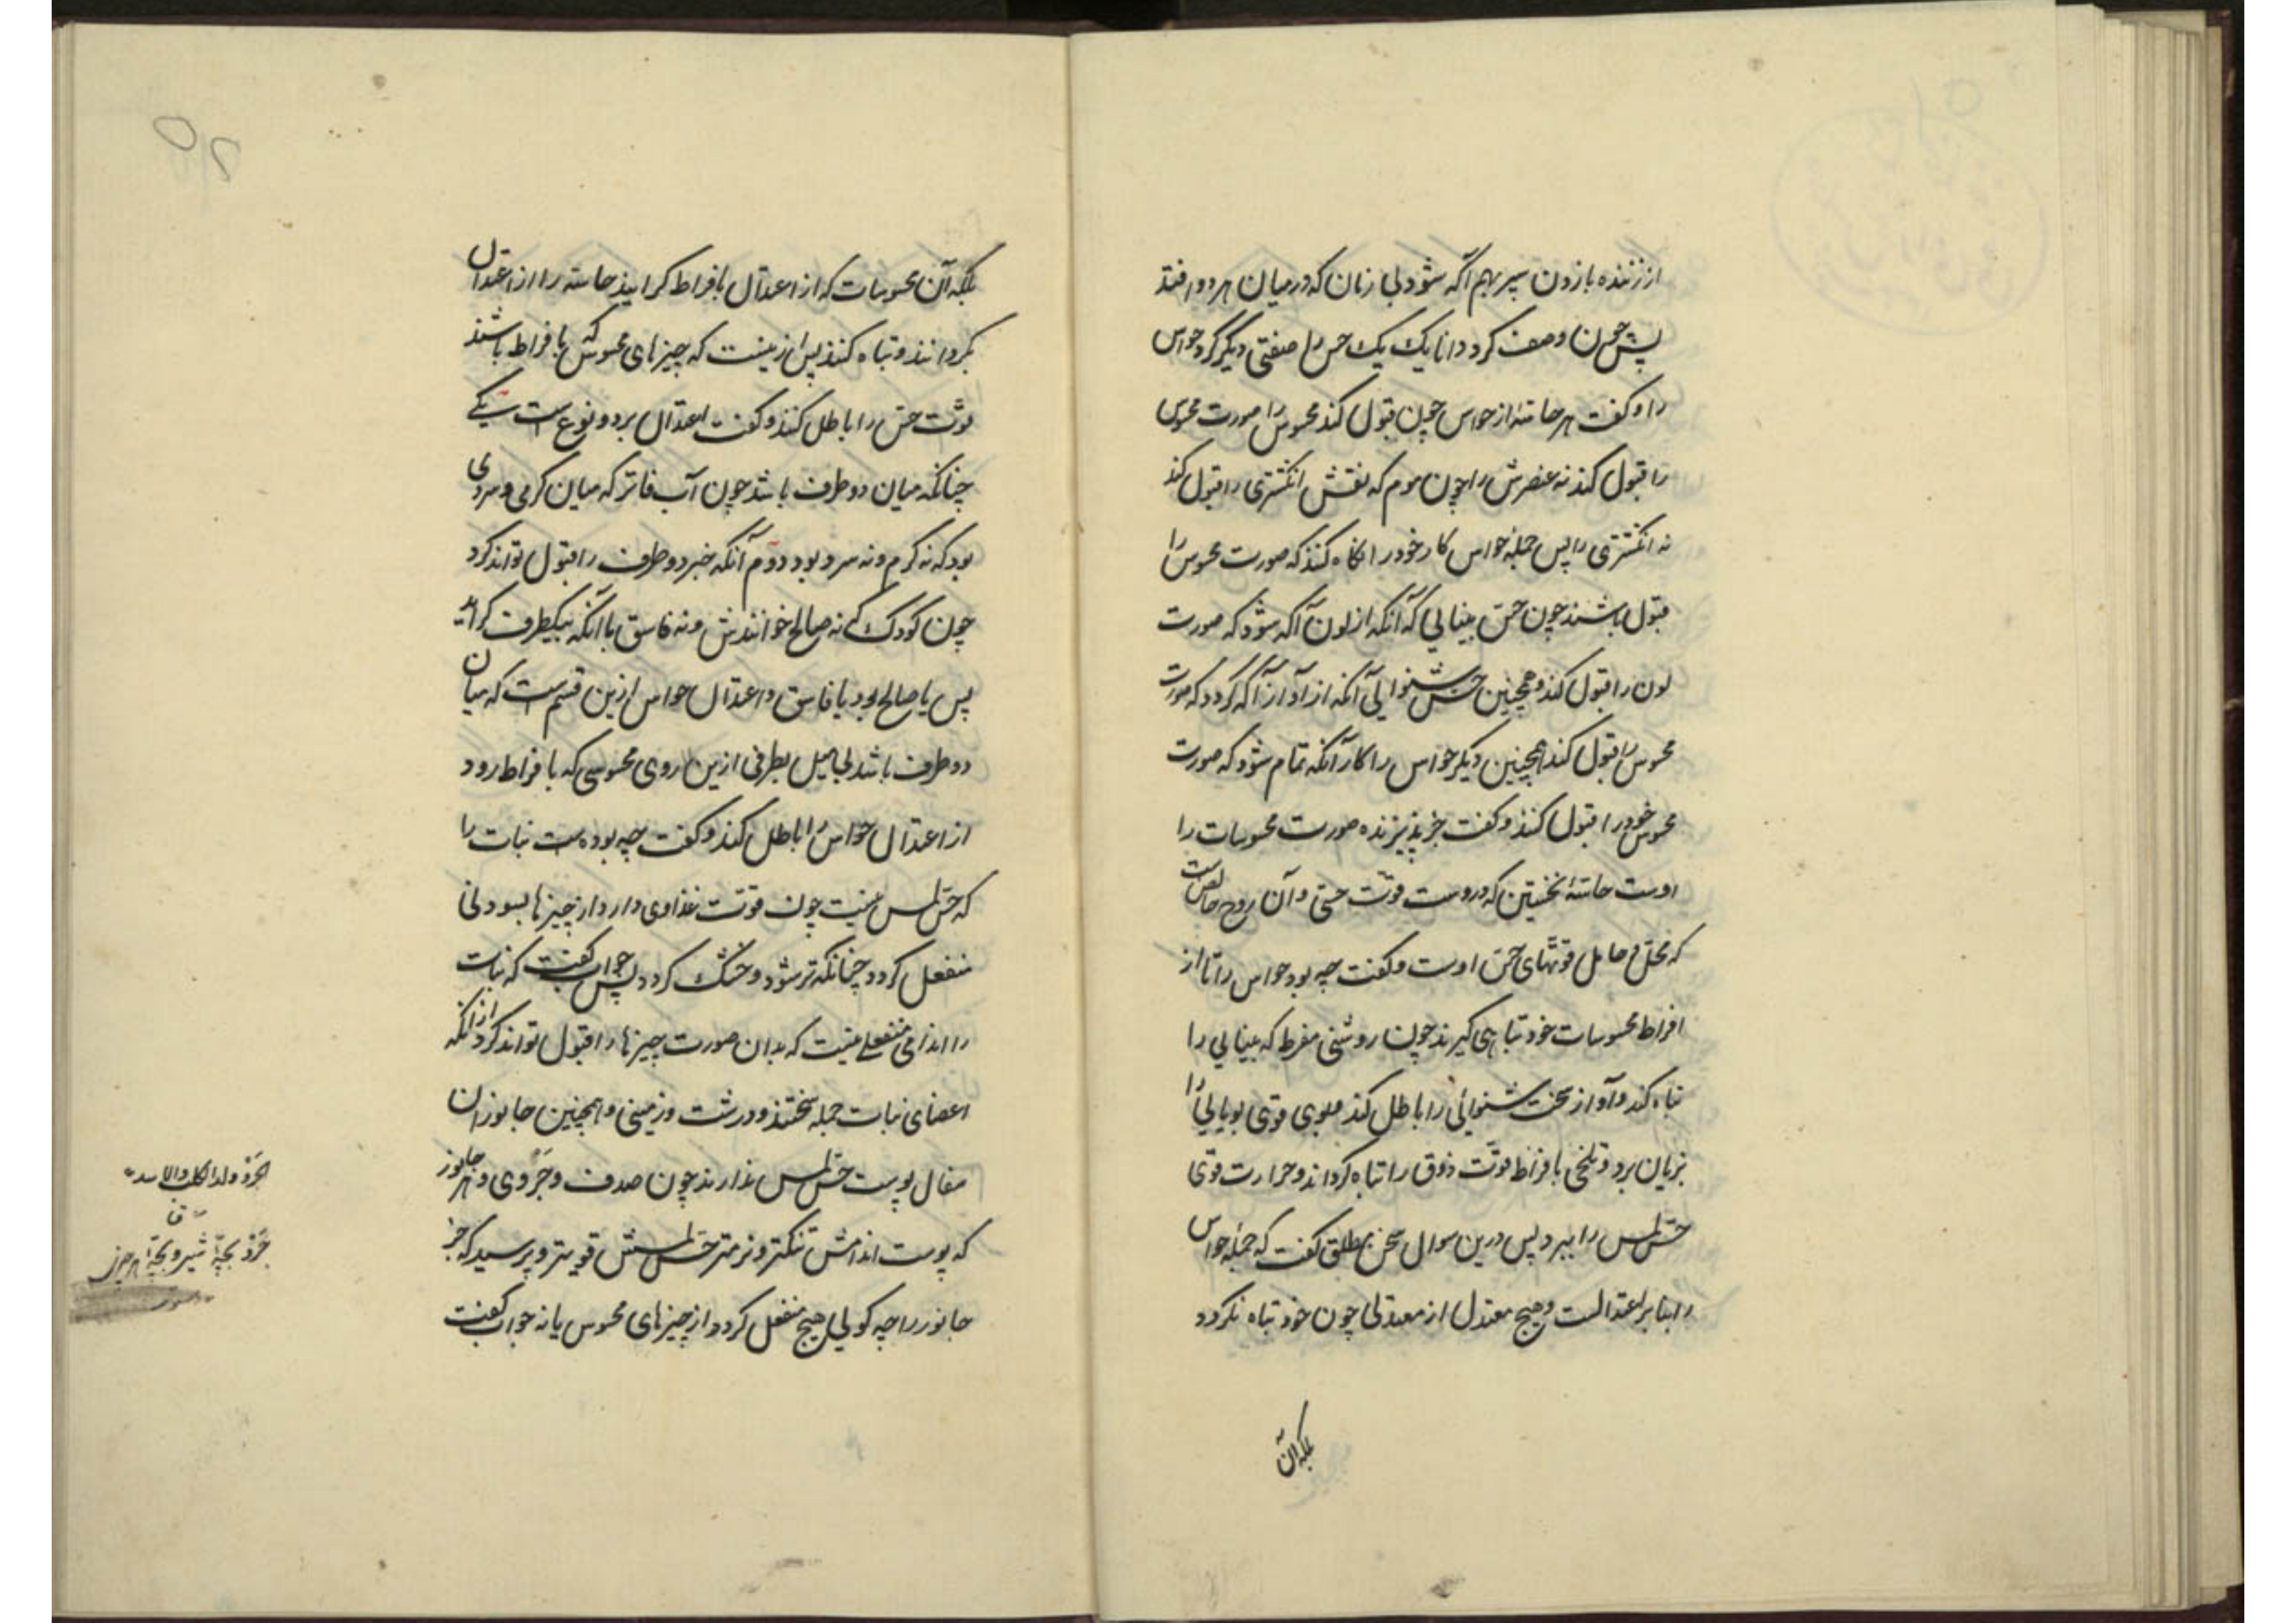 از زننده بازدن سپر بهم آگه شود بی زمان که در میان هر دو افتد
پس چون وصف کرد دانا یک یک حس را صفتی دیگر کرد حواس
را و گفت هر حاسّهٔ از حواس چون قبول کند محسوس را صورت محسوس
را قبول کند نه عنصرش را چون موم که نقش انگشتری را قبول کند
نه انگشتری را پس جمله حواس کار خود را آنگاه کنند که صورت محسوس را
قبول باشند چون حسّ بینایی که آنگه از لون آگه شود که صورت
لون را قبول کند و همچنین حسّ شنوایی آنگه از آواز آگه گردد که صورت
محسوس را قبول کند همچنین دیگر حواس را کار آنگه تمام شود که صورت
محسوس خود را قبول کنند و گفت جز پذیرنده صورت محسوسات را
اوست حاسّهٔ نخستین که دروست قوّت حسّی و آن روح خاص است
که محلّ و حامل قوّتهای حسّ اوست و گفت چه بود حواس را تا از
افراط محسوسات خود تباهی گیرند چون روشنی مفرط که بینایی را
تباه کند و آواز سخت شنوائی را باطل کند و بوی قوی بویایی را
بزیان برد و تلخی بافراط قوّت ذوق را تباه گرداند و حرارت قوی
حسّ لمس را ببرد پس درین سوال سخن مطلق گفت که جمله حواس
را بنا بر اعتدالست و هیچ معتدل از معتدلی چون خود تباه نگردد
بلکه آن
بلکه آن محسوسات که از اعتدال بافراط گرایند حاسّه را از اعتدال
بگردانند و تباه کنند پس ازینست که چیزهای محسوس که بافراط باشند
قوّت حسّ را باطل کنند و گفت اعتدال بر دو نوع است یکی
چنانکه میان دو طرف باشد چون آب فاتر که میان گرمی و سردی
بود که نه گرم و نه سرد بود دوّم آنکه خبر دو طرف را قبول تواند کرد
چون کودک که نه صالح خوانندش و نه فاسق با آنکه بیکطرف گراید
پس یا صالح بود یا فاسق و اعتدال حواس ازین قسم است که میان
دو طرف باشد بی میل بطرفی ازین روی محسوسی که بافراط رود
از اعتدال حواس را باطل کند و گفت چه بوده است نبات را
که حسّ لمس نیست چون قوّت غذاوی دارد از چیزها بسودنی
منفعل گردد چنانکه تر شود و خشک گردد پس جواب گفت که نبات
را اندامی منفعلی نیست که بدان صورت چیزها را قبول تواند کرد از آنکه
اعضای نبات جمله سختند و درشت و زمینی و همچنین جانوران
سفال پوست حسّ لمس ندارند چون صدف و جَروی و هر جانور
که پوست اندامش تنکتر و نرمتر حسّ لمسش قویتر و پرسید که جز
جانور را چه گویی هیچ منفعل گردد از چیزهای محسوس یا نه جواب گفت
الجرو ولد الکلب والاسد
ق
جرو بچّهٔ شیر و بچّهٔ هر چیز